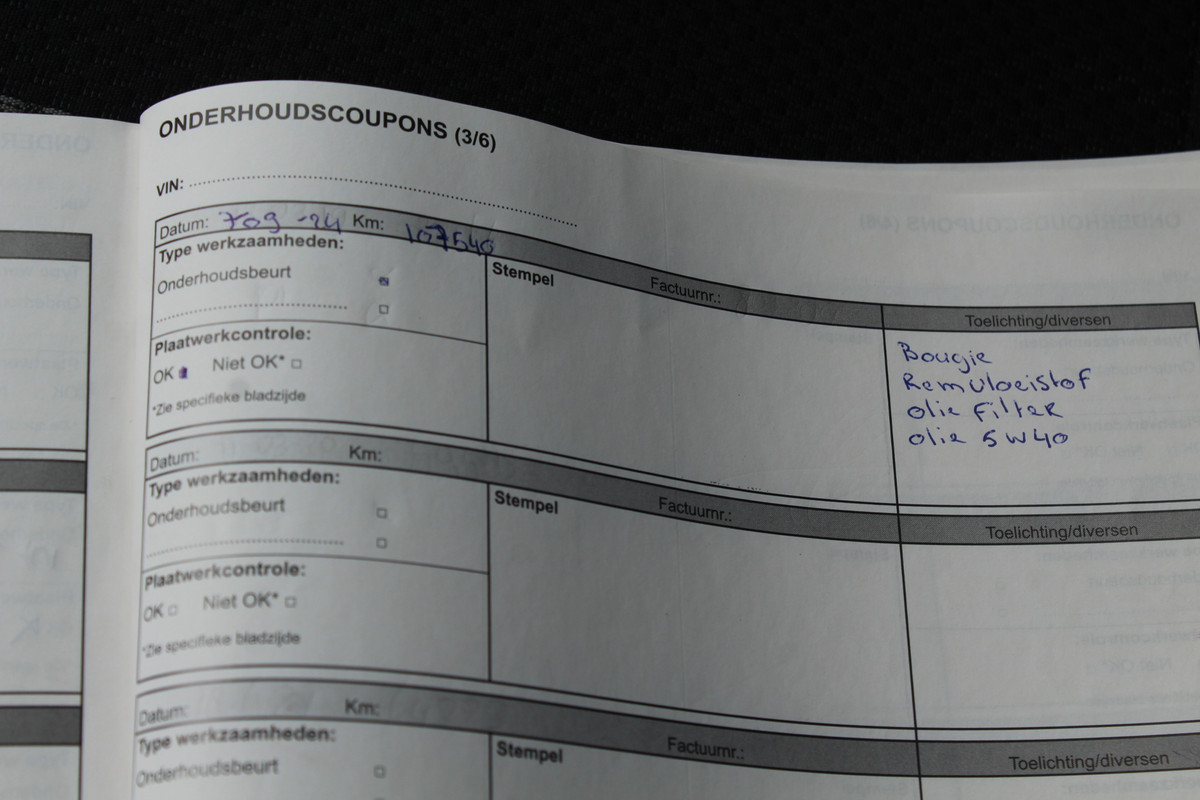 ONDERHOUDSCOUPONS (3/6)
VIN:
Datum: 709 -24 Km: 107540
Factuurnr.:
Toelichting/diversen
Type werkzaamheden:
Stempel
Onderhoudsbeurt
Plaatwerkcontrole:
OK Niet OK*
*Zie specifieke bladzijde
Bougie
Remvloeistof
olie Filter
olie 5W40
Datum: Km:
Factuurnr.:
Toelichting/diversen
Type werkzaamheden:
Stempel
Onderhoudsbeurt
Plaatwerkcontrole:
OK Niet OK*
*Zie specifieke bladzijde
Datum: Km:
Factuurnr.:
Toelichting/diversen
Type werkzaamheden:
Stempel
Onderhoudsbeurt